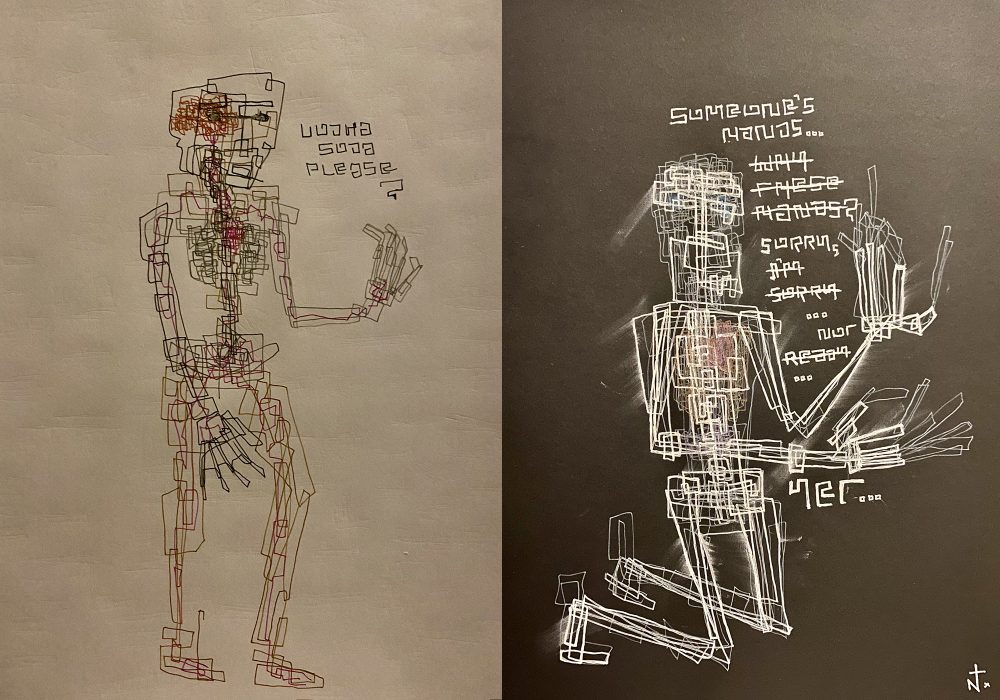 VODKA
SODA
PLEASE
?
SOMEONE'S
HANDS...
WHY
THESE
HANDS?
SORRY,
I'M
SORRY
...
NOT
READY
...
YET...